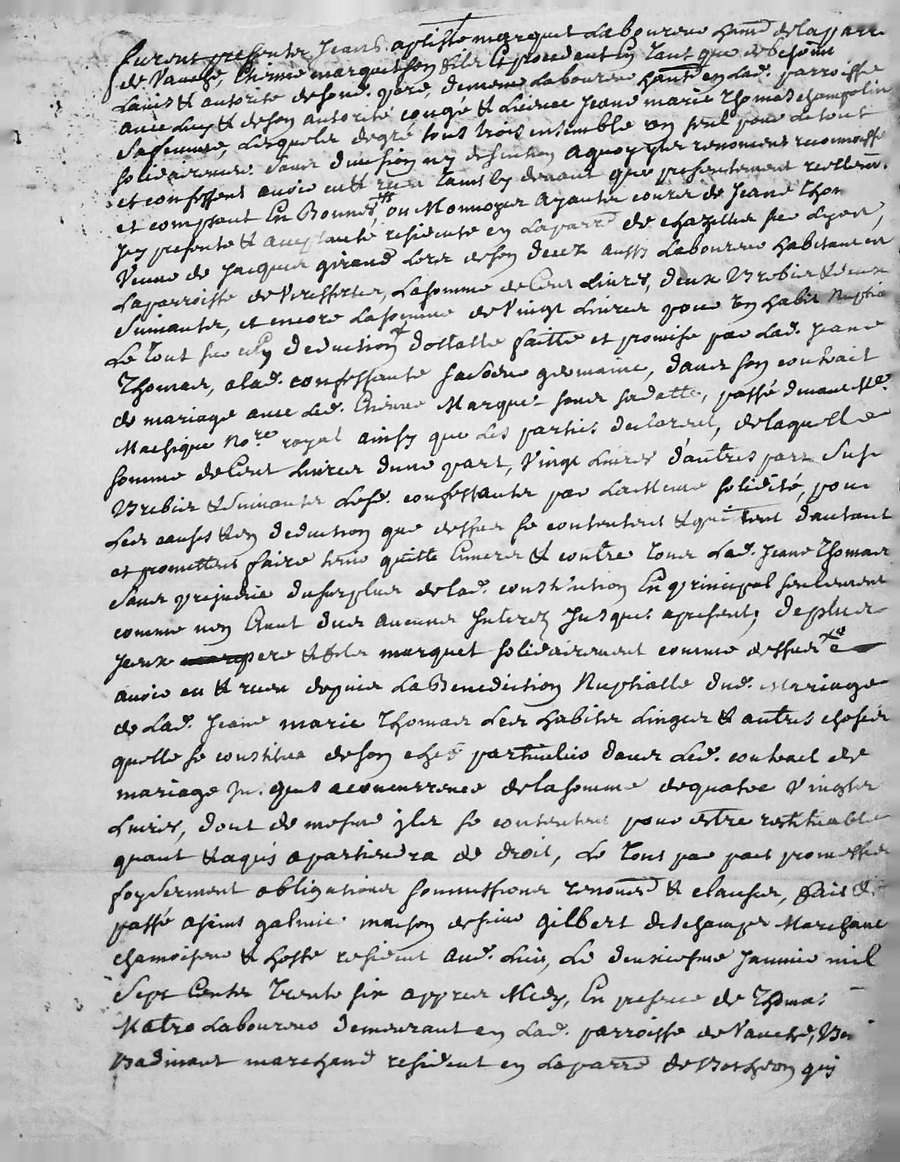 furent presentes Jean B.aptiste marquet Laboureur hant de la parre
de Vauche, Etienne marquet son fils Et procedent En tant que de besoin
L'avis & autorité de sond. pere, demeure Laboureur hantt en Lad. parroisse
avec Luy & de son autorité congé & Licence Jeane marie Thomas champolin
sa femme, Lesquels de gré tous trois ensemble un seul pour Le tout
solidairement sans division ny discution a quoy ils renoncent reconnoisst
et confessent avoir eu & receu tant cy devant que presentement reellemt.
et comptant En Bonnes ou Monnoyes ayante cours de Jeane Thom
Jcy presente & acceptante residente en La parre de chazelles sur Lyon,
Veuve de Jacques giraud Lors de son decez aussy Laboureur habitant en
La parroisse de Verssertes, La somme de Cent Livres, deux Brebis & deux
Suivantes, et encore La somme de Vingt Livres pour Un habit Nuptia
Le tout sur et En deduction dottatte faitte et promise par Lad. Jeane
Thomas, a lad. confessante sa soeur germaine, dans son contrait
de mariage avec Led. Etienne Marquet sous sa datte, passé devant Me.
Massique Nore royal ainsy que Les parties declarent, de laquelle
somme de Cent Livres d'une part, Vingt Livres d'autres part Susd
Brebis & Suivantes Lesd. confessants par La Meme solidité, pour
Les causes & en deduction que dessus se contentent & quittent d'autant
et promettent faire tenir quitte Envers & contre tous Lad. Jeane Thomas
sans prejudice du surplus de lad. constitution En principal seulement
comme n'en Etant dus aucuns Interez Jusques apresent, de plus
Jceux pere & fils marquet solidairement comme dessus
avoir eu & receu depuis La Benediction Nuptialle dud. Mariage
de Lad. Jeane marie Thomas Les habits Linges & autres choses
quelle se constitua de son chef particulier dans Led. contract de
mariage Jusques a concurrence de la somme de quatre Vingts
Livres, dont de mesme ils se contentent pour estre restituable
quant & a qui apartiendra de droit, Le tout par pact promesses
foy serment obligations soumissions renonc. & clauses, fait &
passé a saint galmier maison de sieur Gilbert deschamps Marchant
chamoiseur & hoste resident aud. Lieu, Le deuxiesme Janvier mil
Sept Cents Trente six appres Midy, En presence de Thomas
Matro Laboureur demeurant en Lad. parroisse de Vauche,
Badinant marchand resident en La parre de Botheon qui